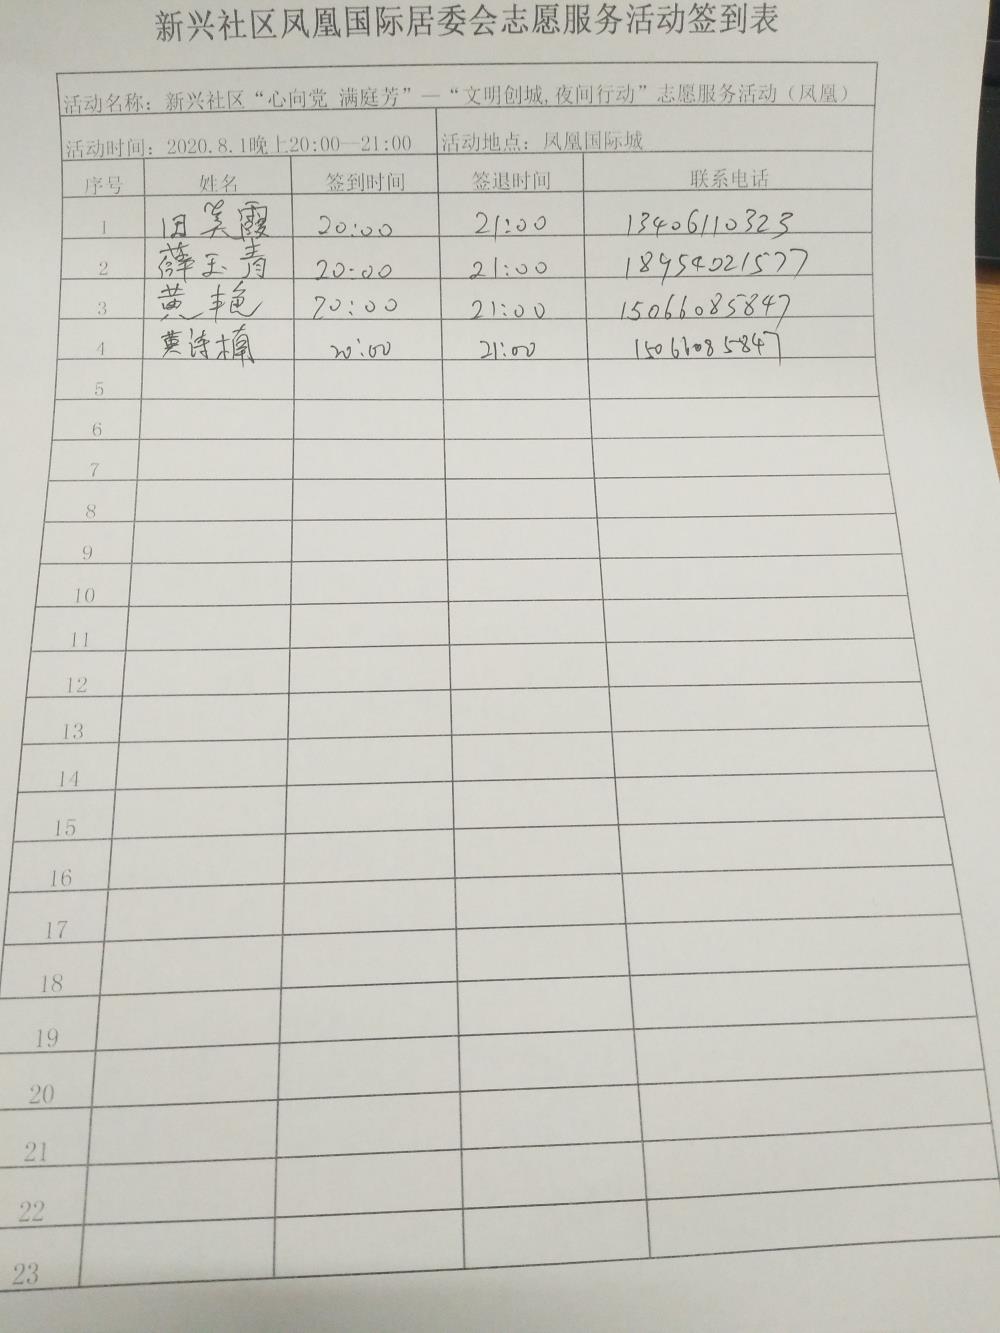 新兴社区凤凰国际居委会志愿服务活动签到表
活动名称：新兴社区“心向党 满庭芳”—“文明创城,夜间行动”志愿服务活动（凤凰）
活动时间：2020.8.1晚上20:00—21:00 活动地点：凤凰国际城
序号 姓名 签到时间 签退时间 联系电话
1 田美霞 20:00 21:00 13406110323
2 薛玉青 20:00 21:00 18954021577
3 黄艳 20:00 21:00 15066085847
4 黄诗楠 20:00 21:00 15066085847
5
6
7
8
9
10
11
12
13
14
15
16
17
18
19
20
21
22
23